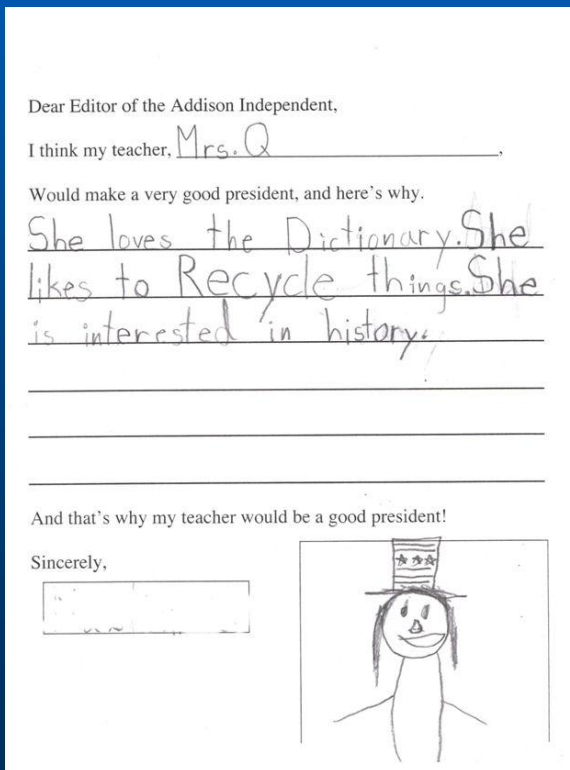 Dear Editor of the Addison Independent,
I think my teacher, Mrs. Q,
Would make a very good president, and here's why.
She loves the Dictionary. She
likes to Recycle things. She
is interested in history.
And that's why my teacher would be a good president!
Sincerely,